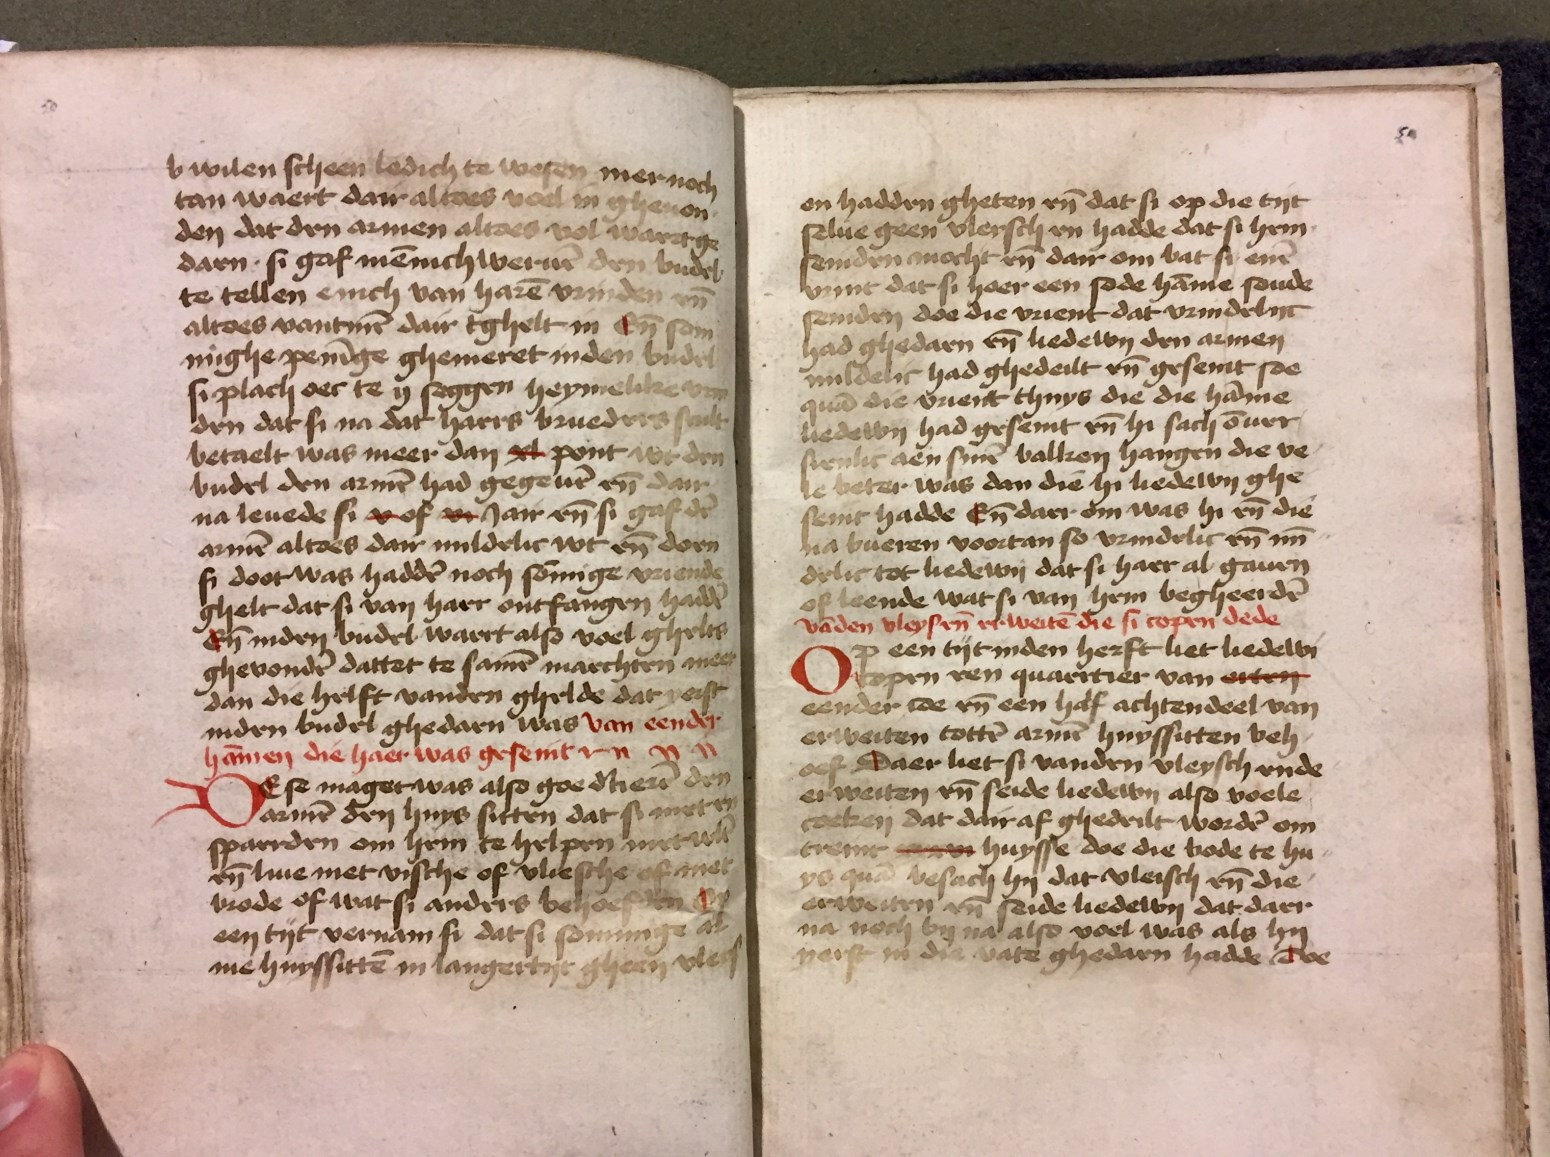 50
b wilen scheen ledich te wesen mer noch
tan waert dair altoes voel in gheuon
den dat den armen altoes vol waert ge
daen · si gaf mēnichweruē den budel
te tellen enich van harē vrinden en̄
altoes vantmē dair tghelt in En̄ som
mighe penīge ghemeret inden budel
si plach oec te seggen heymelike
den dat si na dat haers brueders scult
betaelt was meer dan xl pont wt den
budel den armē had gegeuē en̄ dair
na leuede si v of vi Jair en̄ si gaf dē
armē altoes dair mildelic wt en̄ doen
si doot was haddē noch sōmige vriende
ghelt dat si van haer ontfangen haddē
En̄ inden budel waert also voel ghelts
ghevondē dattet te samē maechten meer
dan die helft vanden ghelde dat yerst
inden budel ghedaen was van eender
hāmen die haer was gesent
Dese maget was also goedtierē den
armē den huys sitten dat si
spaerden om hem te helpen
en̄ liue met vische of vliesche of met
brode of wat si anders behoefden Op
een tijt vernam si dat si sommige al
me huyssittē in langertijt gheen vleis
50
en hadden gheten en̄ dat si op die tijt
selue geen vleisch en hadde dat si hem
seinden mocht en̄ dair om bat si enē
vrint dat si hoer een sode hāme soude
seinden doe die vrient dat vrindelijc
had ghedaen en̄ liedewij den armen
mildelic had ghedeilt en̄ gesent soe
quā die vrient thuys die die hāme
liedewij had gesent en̄ hi sach ōuer
sienlic aen sinē balken hangen die ve
le beter was dan die hi liedewij ghe
seint hadde En̄ daer om was hi en̄ die
na bueren voortan so vrindelic en̄ mī
delic tot liedewij dat si haer al gauen
of leende wat si van hem begheerdē
vādēn vleys en̄ erweitē die si copen dede
Op een tijt inden herft liet liedewi
copen een quartier van eiten
eender coe en̄ een half achtendeel van
erweiten tottē armē huyssitten beh
oef Daer liet si vanden vleysch ende
erweiten en̄ seide liedewij also voele
coeken dat dair af ghedeilt wordē om
trent huysse doe die bode te hu
ys quā besach hij dat vleisch en̄ die
erweiten en̄ seide liedewij dat daer
na noch bij na also voel was als hij
yerst in die vate ghedaen hadde Doe